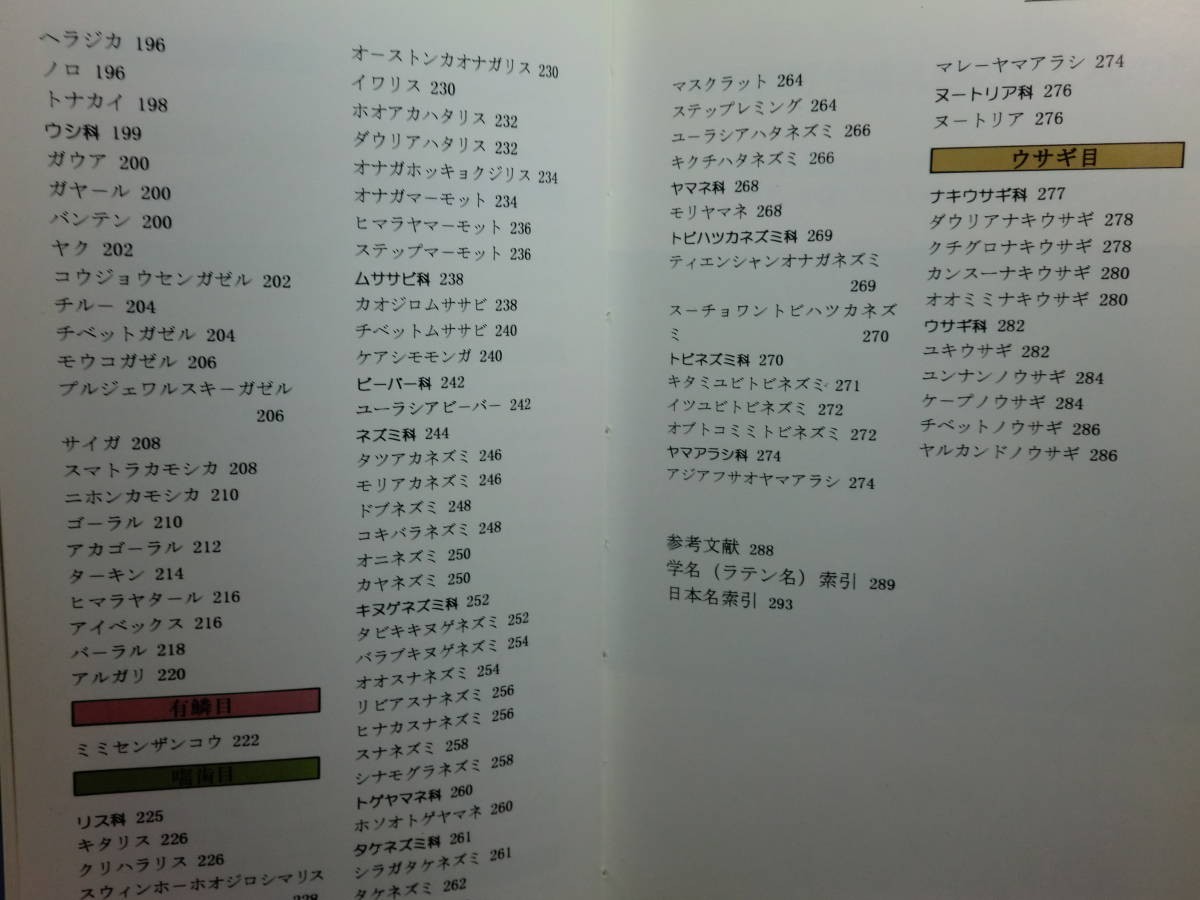 ヘラジカ 196
ノロ 196
トナカイ 198
ウシ科 199
ガウア 200
ガヤール 200
バンテン 200
ヤク 202
コウジョウセンガゼル 202
チルー 204
チベットガゼル 204
モウコガゼル 206
プルジェワルスキーガゼル
206
サイガ 208
スマトラカモシカ 208
ニホンカモシカ 210
ゴーラル 210
アカゴーラル 212
ターキン 214
ヒマラヤタール 216
アイベックス 216
バーラル 218
アルガリ 220
有鱗目
ミミセンザンコウ 222
囓歯目
リス科 225
キタリス 226
クリハラリス 226
スウィンホーホオジロシマリス
228
オーストンカオナガリス 230
イワリス 230
ホオアカハタリス 232
ダウリアハタリス 232
オナガホッキョクジリス 234
オナガマーモット 234
ヒマラヤマーモット 236
ステップマーモット 236
ムササビ科 238
カオジロムササビ 238
チベットムササビ 240
ケアシモモンガ 240
ビーバー科 242
ユーラシアビーバー 242
ネズミ科 244
タツアカネズミ 246
モリアカネズミ 246
ドブネズミ 248
コキバラネズミ 248
オニネズミ 250
カヤネズミ 250
キヌゲネズミ科 252
タビキキヌゲネズミ 252
バラブキヌゲネズミ 254
オオスナネズミ 254
リビアスナネズミ 256
ヒナカスナネズミ 256
スナネズミ 258
シナモグラネズミ 258
トゲヤマネ科 260
ホソオトゲヤマネ 260
タケネズミ科 261
シラガタケネズミ 261
タケネズミ 262
マスクラット 264
ステップレミング 264
ユーラシアハタネズミ 266
キクチハタネズミ 266
ヤマネ科 268
モリヤマネ 268
トビハツカネズミ科 269
ティエンシャンオナガネズミ
269
スーチョワントビハツカネズ
ミ 270
トビネズミ科 270
キタミユビトビネズミ 271
イツユビトビネズミ 272
オブトコミミトビネズミ 272
ヤマアラシ科 274
アジアフサオヤマアラシ 274
参考文献 288
学名（ラテン名）索引 289
日本名索引 293
マレーヤマアラシ 274
ヌートリア科 276
ヌートリア 276
ウサギ目
ナキウサギ科 277
ダウリアナキウサギ 278
クチグロナキウサギ 278
カンスーナキウサギ 280
オオミミナキウサギ 280
ウサギ科 282
ユキウサギ 282
ユンナンノウサギ 284
ケープノウサギ 284
チベットノウサギ 286
ヤルカンドノウサギ 286